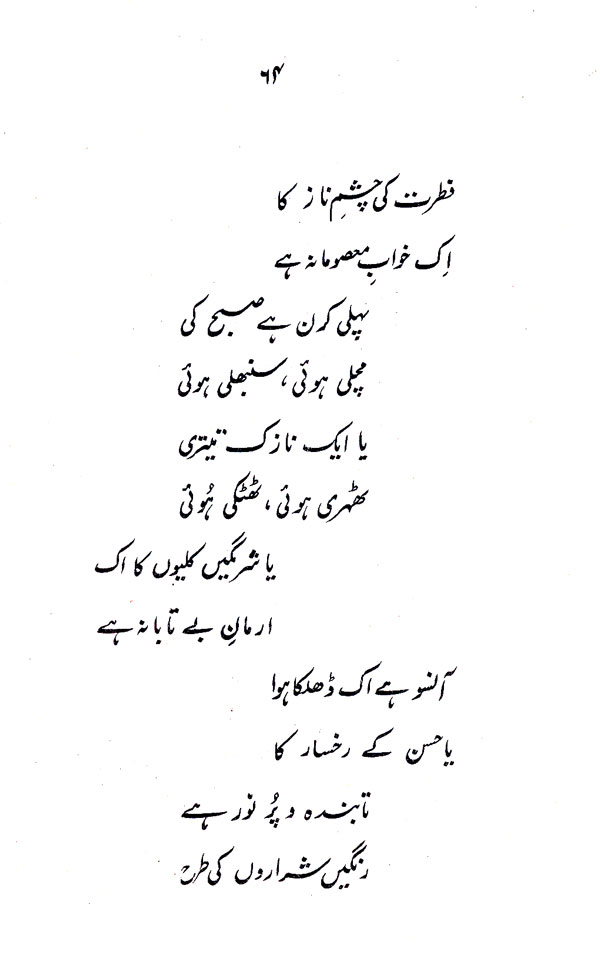 ۶۴
فطرت کی چشمِ ناز کا
اِک خوابِ معصومانہ ہے
پہلی کرن ہے صبح کی
مچلی ہوئی، سنبھلی ہوئی
یا ایک نازک تیتری
ٹھہری ہوئی، ٹھٹکی ہُوئی
یا شرمگیں کلیوں کا اک
ارمانِ بے تابانہ ہے
آنسو ہے اک ڈھلکا ہوا
یا حسن کے رخسار کا
تابندہ و پُر نور ہے
رنگیں شراروں کی طرح